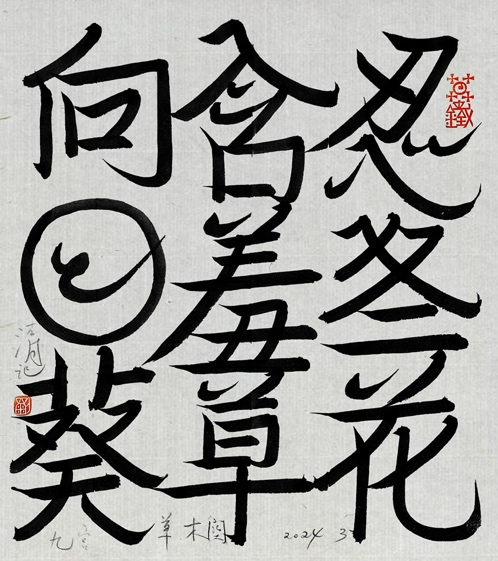 忍冬花
含羞草
向日葵
九宫 草木 2024 3